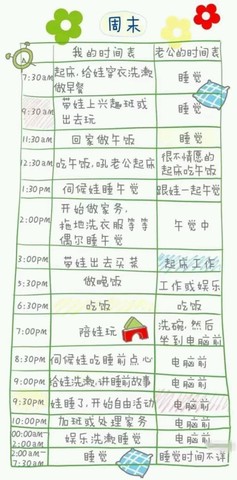 周末
我的时间表 老公的时间表
7:30am 起床,给娃穿衣洗漱 做早餐 睡觉
9:30am 带娃上兴趣班或 出去玩 睡觉
11:30am 回家做午饭 睡觉
12:30am 吃午饭,吼老公起床 很不情愿的 起床吃午饭
1:30pm 伺候娃睡午觉 跟娃一起午觉
2:00pm 开始做家务, 拖地洗衣服等等 偶尔睡午觉 午觉中
3:00pm 带娃出去买菜 起床工作
5:30pm 做晚饭 工作或娱乐
6:30pm 吃饭 吃饭
7:00pm 陪娃玩 洗碗,然后 坐到电脑前
8:30pm 伺候娃吃睡前点心 电脑前
9:00pm 给娃洗漱,讲睡前故事 电脑前
9:30pm 娃睡了,开始自由活动 电脑前
10:00pm 加班或处理家务 电脑前
00:00am-2:00am 娱乐洗漱睡觉 电脑前
2:00am-7:30am 睡觉 睡觉时间不详